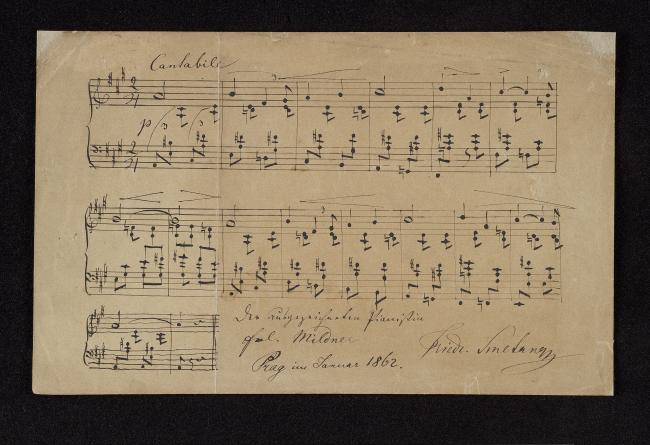 Cantabile
p
Der ausgezeichneten Pianistin
Frl. Mildner
Prag im Januar 1862.
Friedr. Smetana